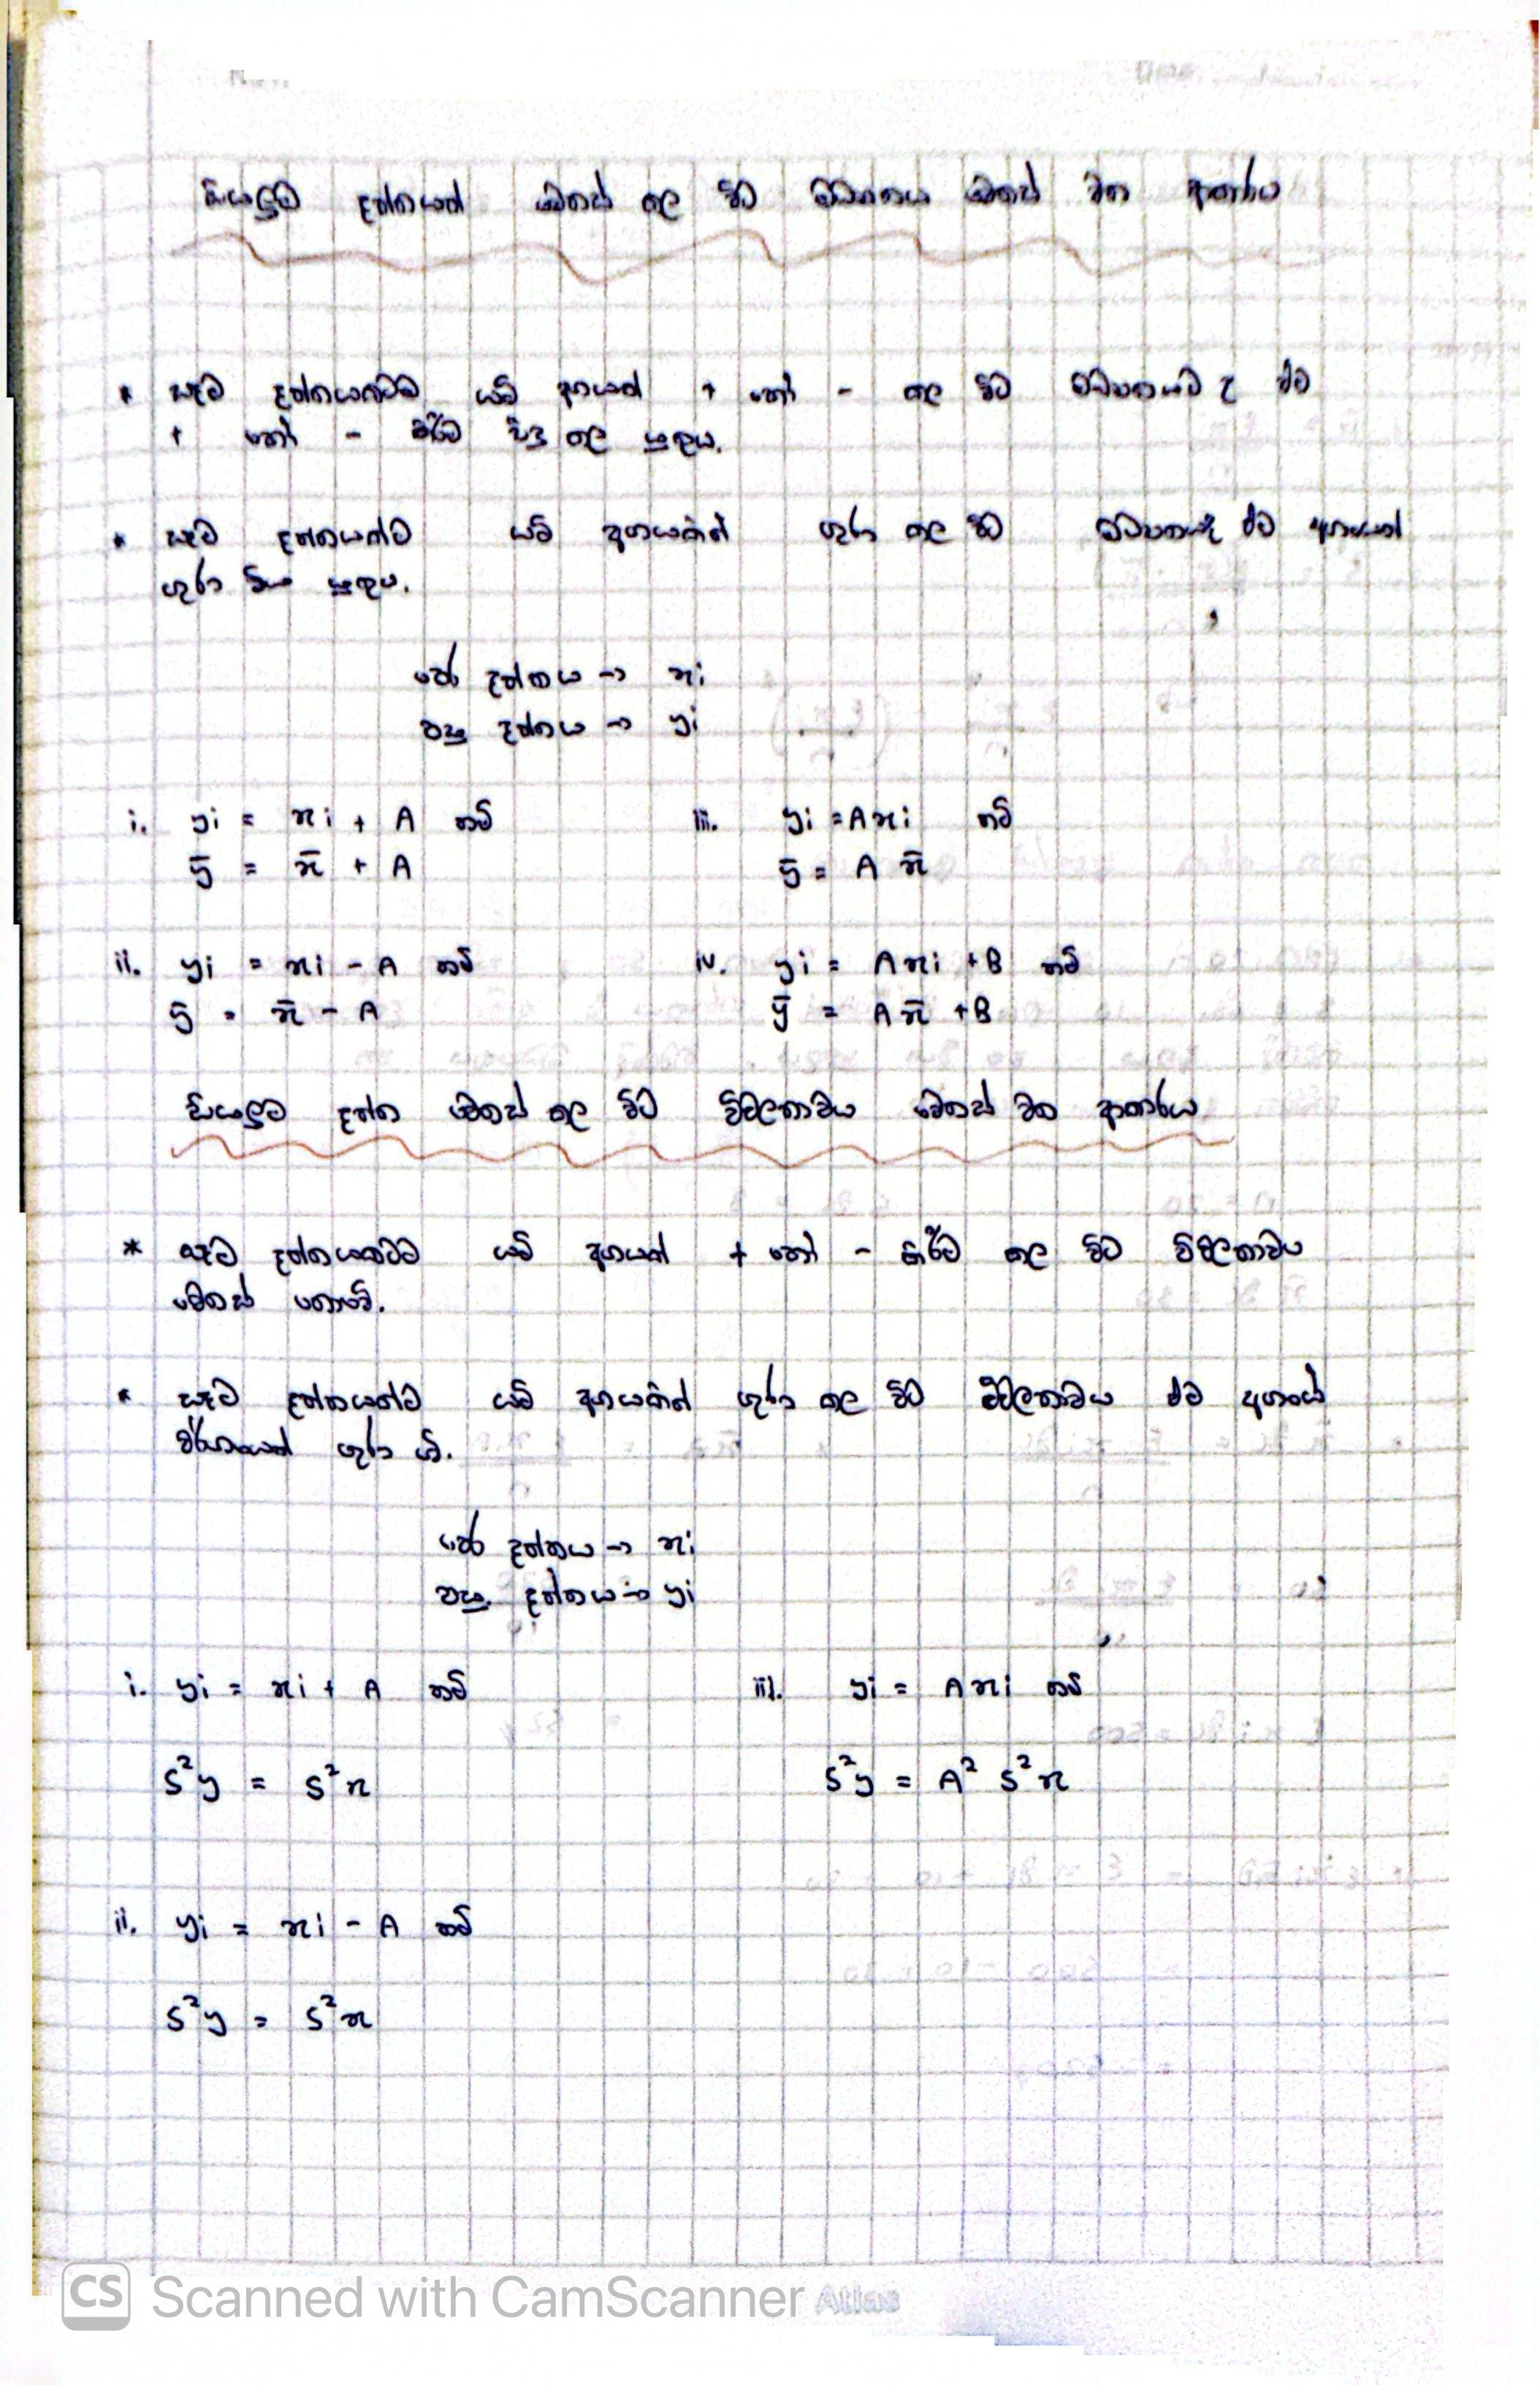 සියලුම දත්තයන් වෙනස් කල විට මධ්‍යන්‍යය වෙනස් වන ආකාරය
* සෑම දත්තයකටම යම් අගයක් + හෝ - කල විට මධ්‍යන්‍යයට ද එම
+ හෝ - කිරීම සිදු කල යුතුය.
* සෑම දත්තයක්ම යම් අගයකින් ගුණ කල විට මධ්‍යන්‍යයද එම අගයෙන්
ගුණ විය යුතුය.
පෙර දත්තය → xi
පසු දත්තය → yi
i. yi = xi + A නම් iii. yi = Axi නම්
ȳ = x̄ + A ȳ = A x̄
ii. yi = xi - A නම් iv. yi = Axi + B නම්
ȳ = x̄ - A ȳ = A x̄ + B
සියලුම දත්ත වෙනස් කල විට විචලතාවය වෙනස් වන ආකාරය
* සෑම දත්තයකටම යම් අගයක් + හෝ - කිරීම කල විට විචලතාවය
වෙනස් නොවේ.
* සෑම දත්තයක්ම යම් අගයකින් ගුණ කල විට විචලතාවය එම අගයේ
වර්ගයෙන් ගුණ වේ.
පෙර දත්තය → xi
පසු දත්තය → yi
i. yi = xi + A නම් iii. yi = Axi නම්
S²y = S²x S²y = A² S²x
ii. yi = xi - A නම්
S²y = S²x
CS Scanned with CamScanner Atlas